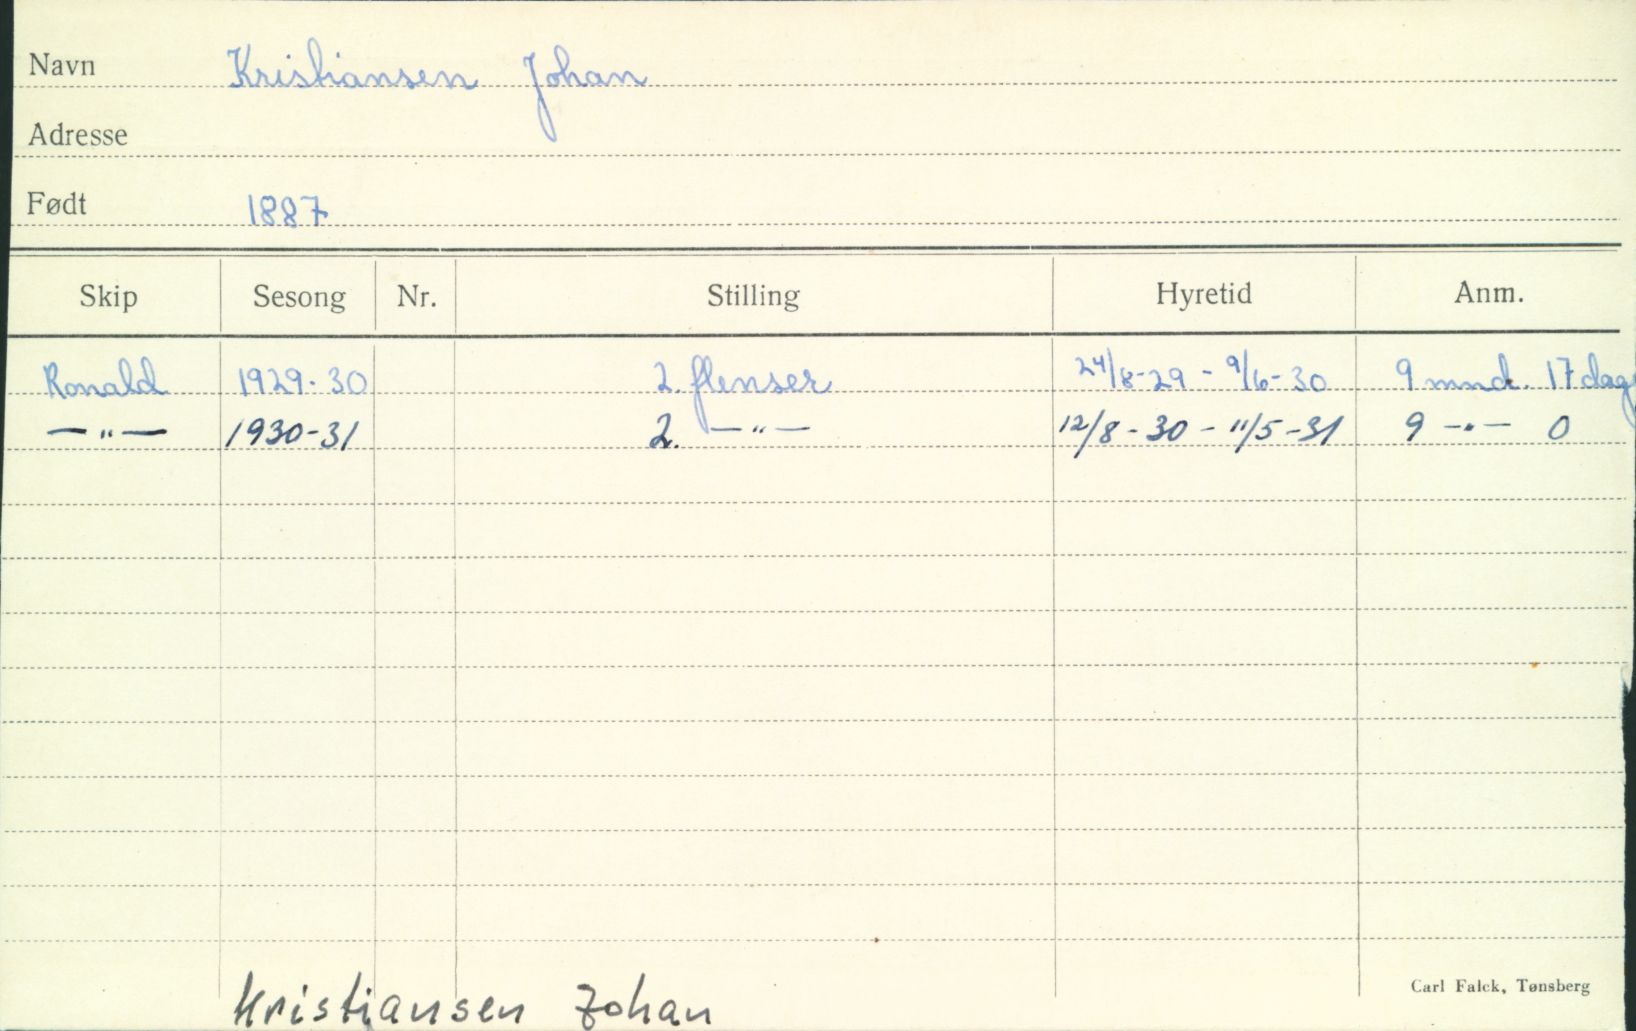 Navn Kristiansen Johan
Adresse
Født 1887
Skip Sesong Nr. Stilling Hyretid Anm.
Ronald 1929-30 2. flenser 24/8-29 - 9/6-30 9 mnd. 17 dag
— " — 1930-31 2. — " — 12/8-30 - 11/5-31 9 — " — 0
Carl Falck, Tønsberg
Kristiansen Johan